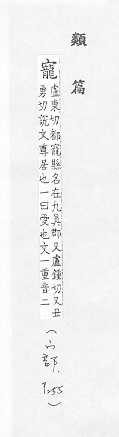 類篇
寵盧東切都寵縣名在九眞郡又盧鍾切又丑
勇切說文尊居也一曰愛也文一重音二
(宀部, 7.255)